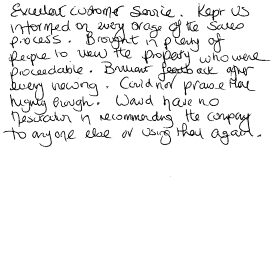 Excellent customer service. Kept us
informed on every stage of the sales
process. Brought in plenty of
people to view the property who were
proceedable. Brilliant feedback after
every viewing. Could not praise them
highly enough. Would have no
hesitation in recommending the company
to anyone else or using them again.